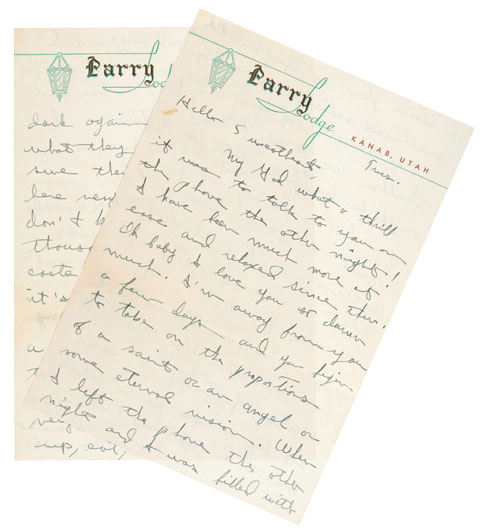 Parry
Lodge
dark again
what they
sure they
here very
don't b
thousan
coste
it's
a
up, evil,
Parry
Lodge
KANAB, UTAH
Tues.
Hello Sweetheart,
My God what a thrill
it was to talk to you on
the phone the other night!
I have been much more at
ease and relaxed since then.
Oh baby I love you so damn
much. I'm away from you
a few days and you begin
to take on the proportions
of a saint or an angel or
some eternal vision. When
I left the phone the other
night and I was filled with